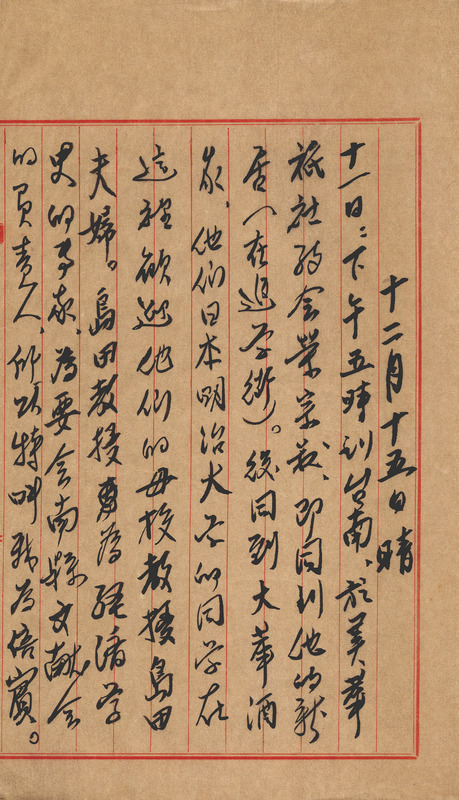 十二月十五日晴
十一日:下午五時到台南、於美華
祗社約會榮宗君、即同到他的新
居(在進学街)。後同到大華酒
家、他們日本明治大学的同学在
這裡歡迎他們的母校教授島田
夫婦。島田教授專為經濟学
史的專家、為要会南縣文献会
的負責人、所以特叫我為倍賓。